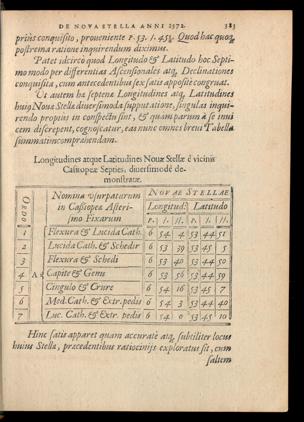 DE NOVA STELLA ANNI 1572. 381
prius conquisito, proveniente P. 53. I. 45½. Quod hac quoq́;
postrema ratione inquirendum diximus.
Patet idcirco quod Longitudo & Latitudo hoc Septi-
mo modo per differentias Ascensionales atq́; Declinationes
conquisita, cum antecedentibus sex satis apposite congruat.
Ut autem hæ septenæ Longitudines atq́; Latitudines
huiq́; Novæ Stellæ diversimoda supputatione, singulas inqui-
rendo propius in conspectu sint, & quam parum à se invi-
cem discrepent, cognoscatur, eas nunc omnes brevi Tabella
summatim comprehendam.
Longitudines atque Latitudines Nouæ Stellæ è vicinis
Cassiopeæ Septies, diuersimodè de-
monstratæ.
ORDO Nomina usurpatarum NOVAE STELLAE
in Cassiopea Asteris- Longitud: Latitudo
mo Fixarum P. I. P. I. II.
1 Flexura & Lucida Cath. 6 54 4 53 44 51
2 Lucida Cath. & Schedir 6 53 39 53 45 5
3 Flexura & Schedi 6 53 40 53 44 50
4 A Capite & Genu 6 53 56 53 44 59
5 Cingulo & Crure 6 54 16 53 45 7
6 Med. Cath. & Extr. pedis 6 54 3 53 44 40
7 Luc. Cath. & Extr. pedis 6 54 0 53 45 10
Hinc satis apparet quam accuratè atq́; subtiliter locus
huius Stellæ, præcedentibus ratiocinijs exploratus sit, cum
saltem